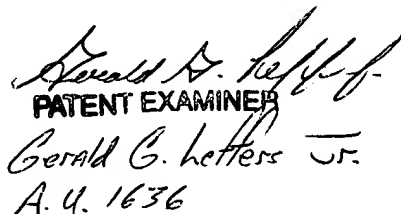 Gerald G. Leffers Jr.
PATENT EXAMINER
Gerald G. Leffers Jr.
A.U. 1636